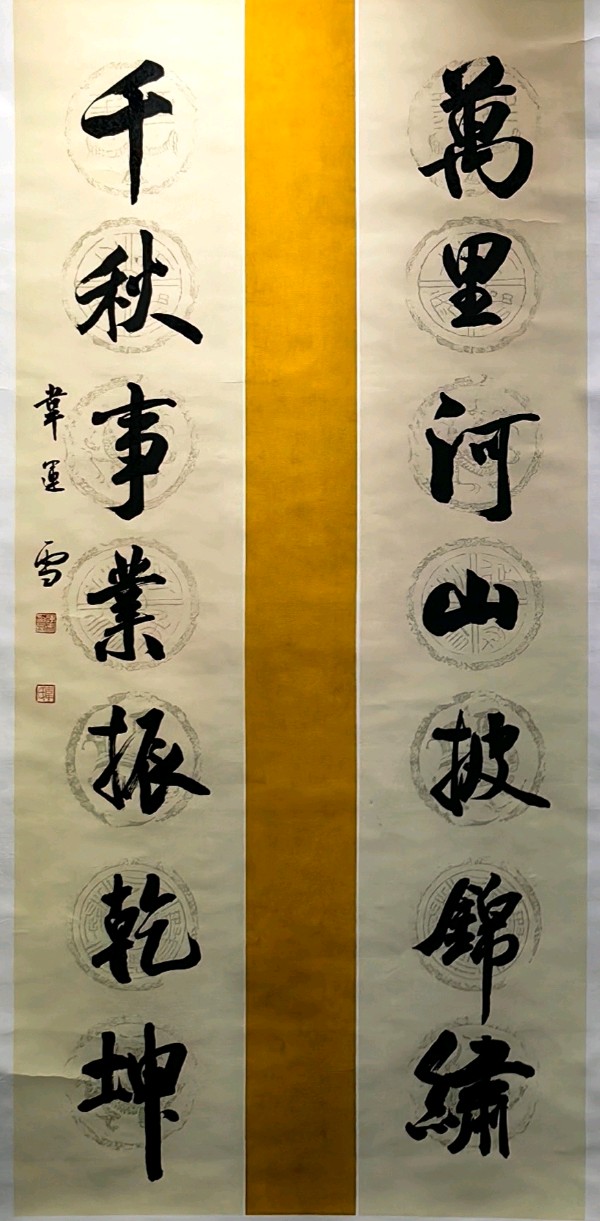 萬里河山披錦繡
千秋事業振乾坤
韋運雪